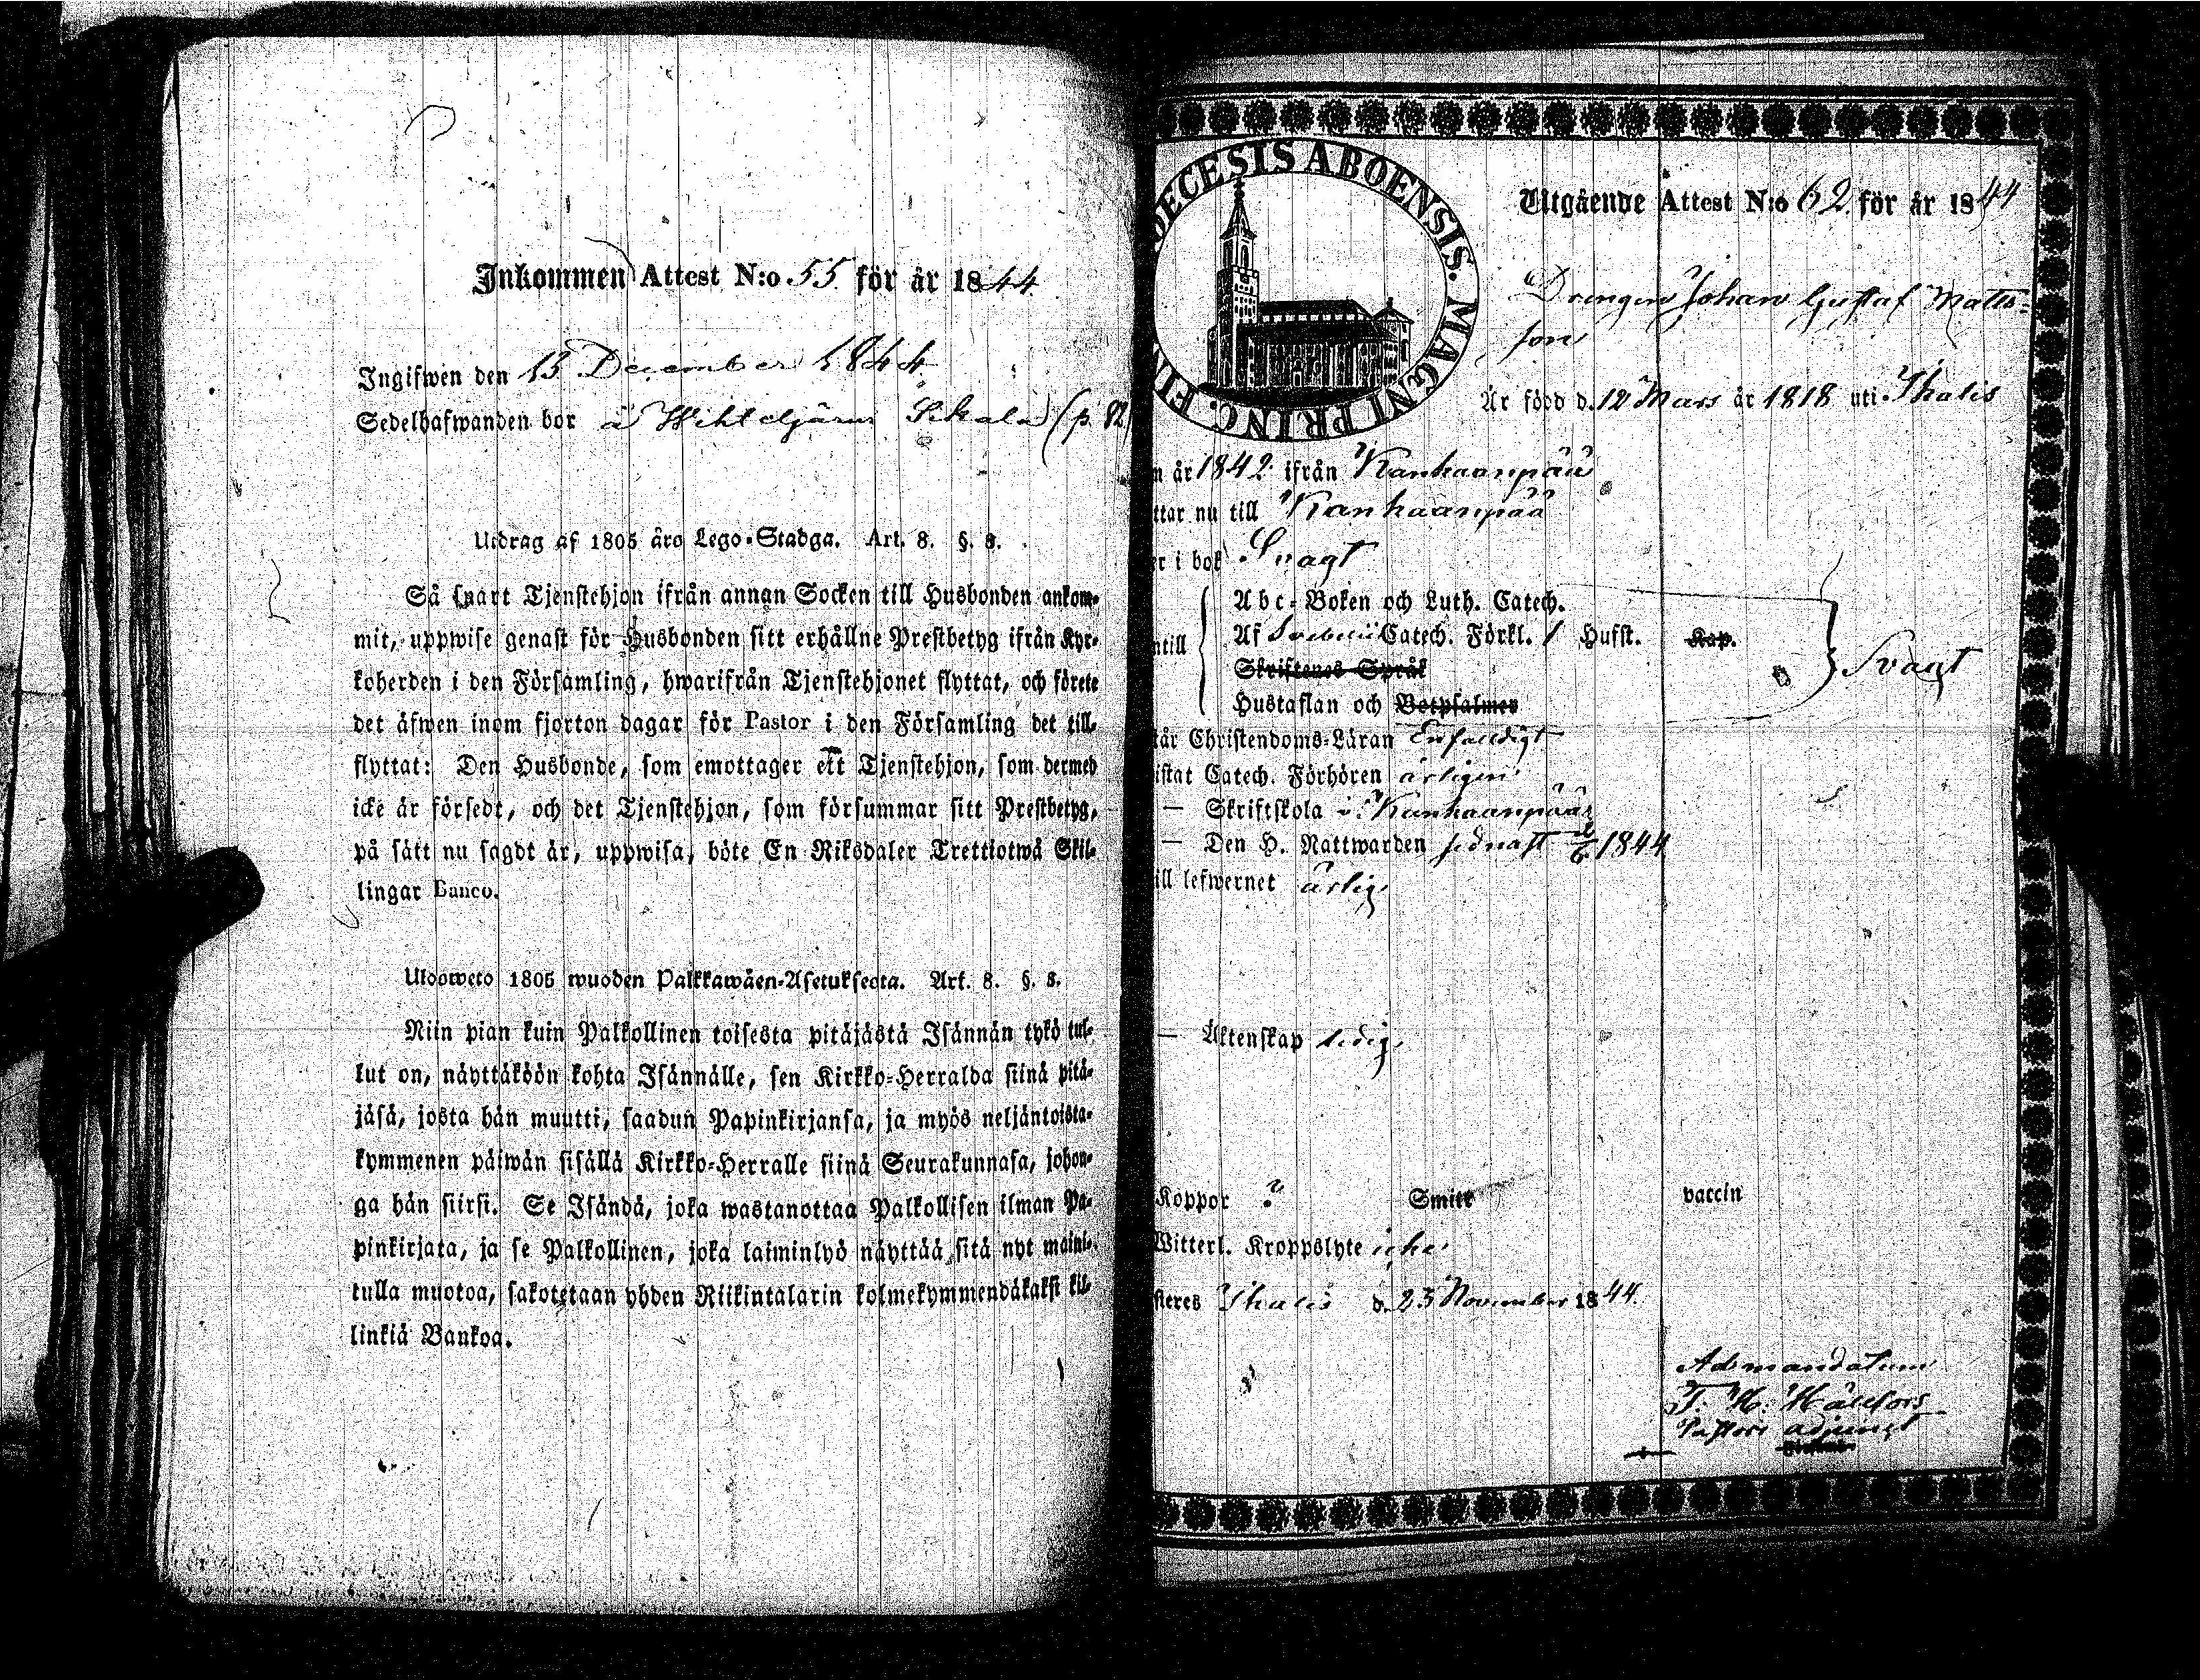 Inkommen Attest N:o 55 för år 1844
Ingifwen den 13 December 1844
Sedelhafwanden bor å (p. 82
Utdrag af 1805 års Lego-Stadga. Art. 8. §. 8.
Så snart Tjenstehjon ifrån annan Socken till Husbonden ankom-
mit, uppwise genast för Husbonden sitt erhållne Prestbetyg ifrån Kyr-
koherden i den Församling, hwarifrån Tjenstehjonet flyttat, och förete
det äfwen inom fjorton dagar för Pastor i den Församling det till-
flyttat: Den Husbonde, som emottager ett Tjenstehjon, som dermed
icke är försedt, och det Tjenstehjon, som försummar sitt Prestbetyg,
på sätt nu sagdt är, uppwisa, böte En Riksdaler Trettiotwå Skil-
lingar Banco.
Ulosweto 1805 wuoden Palkkawäen-Asetuksesta. Art. 8. §. 8.
Niin pian kuin Palkollinen toisesta pitäjästä Isännän tykö tul-
lut on, näyttäköön kohta Isännälle, sen Kirkko-Herralda siinä pitä-
jäsä, josta hän muutti, saadun Papinkirjansa, ja myös neljäntoista-
kymmenen päiwän sisällä Kirkko-Herralle siinä Seurakunnasa, johon-
ga hän siirsi. Se Isändä, joka wastanottaa Palkollisen ilman Pa-
pinkirjata, ja se Palkollinen, joka laiminlyö näyttää sitä nyt maini-
tulla muotoa, sakotetaan yhden Riikintalarin kolmekymmendäkaksi kil-
linkiä Bankoa.
OECESIS ABOENSIS. MAGNI PRINC. FIN
Utgående Attest N:o 62 för år 1844
Drengen Johan Gustaf Matts-
son
Är född d. 12 Mars år 1818 uti Ikalis
m år 1842 ifrån Kankaanpää
ttar nu till Kankaanpää
er i bok Svagt
Abc-Boken och Luth. Catech.
ntill Af Svebilii Catech. Förkl. / Husst. Kap.
Skriftenes Språk
Hustaflan och Botpsalmer
Svagt
tår Christendoms-Läran Enfaldigt
istat Catech. Förhören årligen
— Skriftskola i Kankaanpää
— Den H. Nattwarden sednast 2/6 1844
ill lefwernet ärlig
— Äktenskap ledig
Koppor ? Smitt vaccin
Witterl. Kroppslyte icke
steres Ikalis d. 23 November 1844.
Ad mandatum
T. H. Hällfors
Pastors adjunct